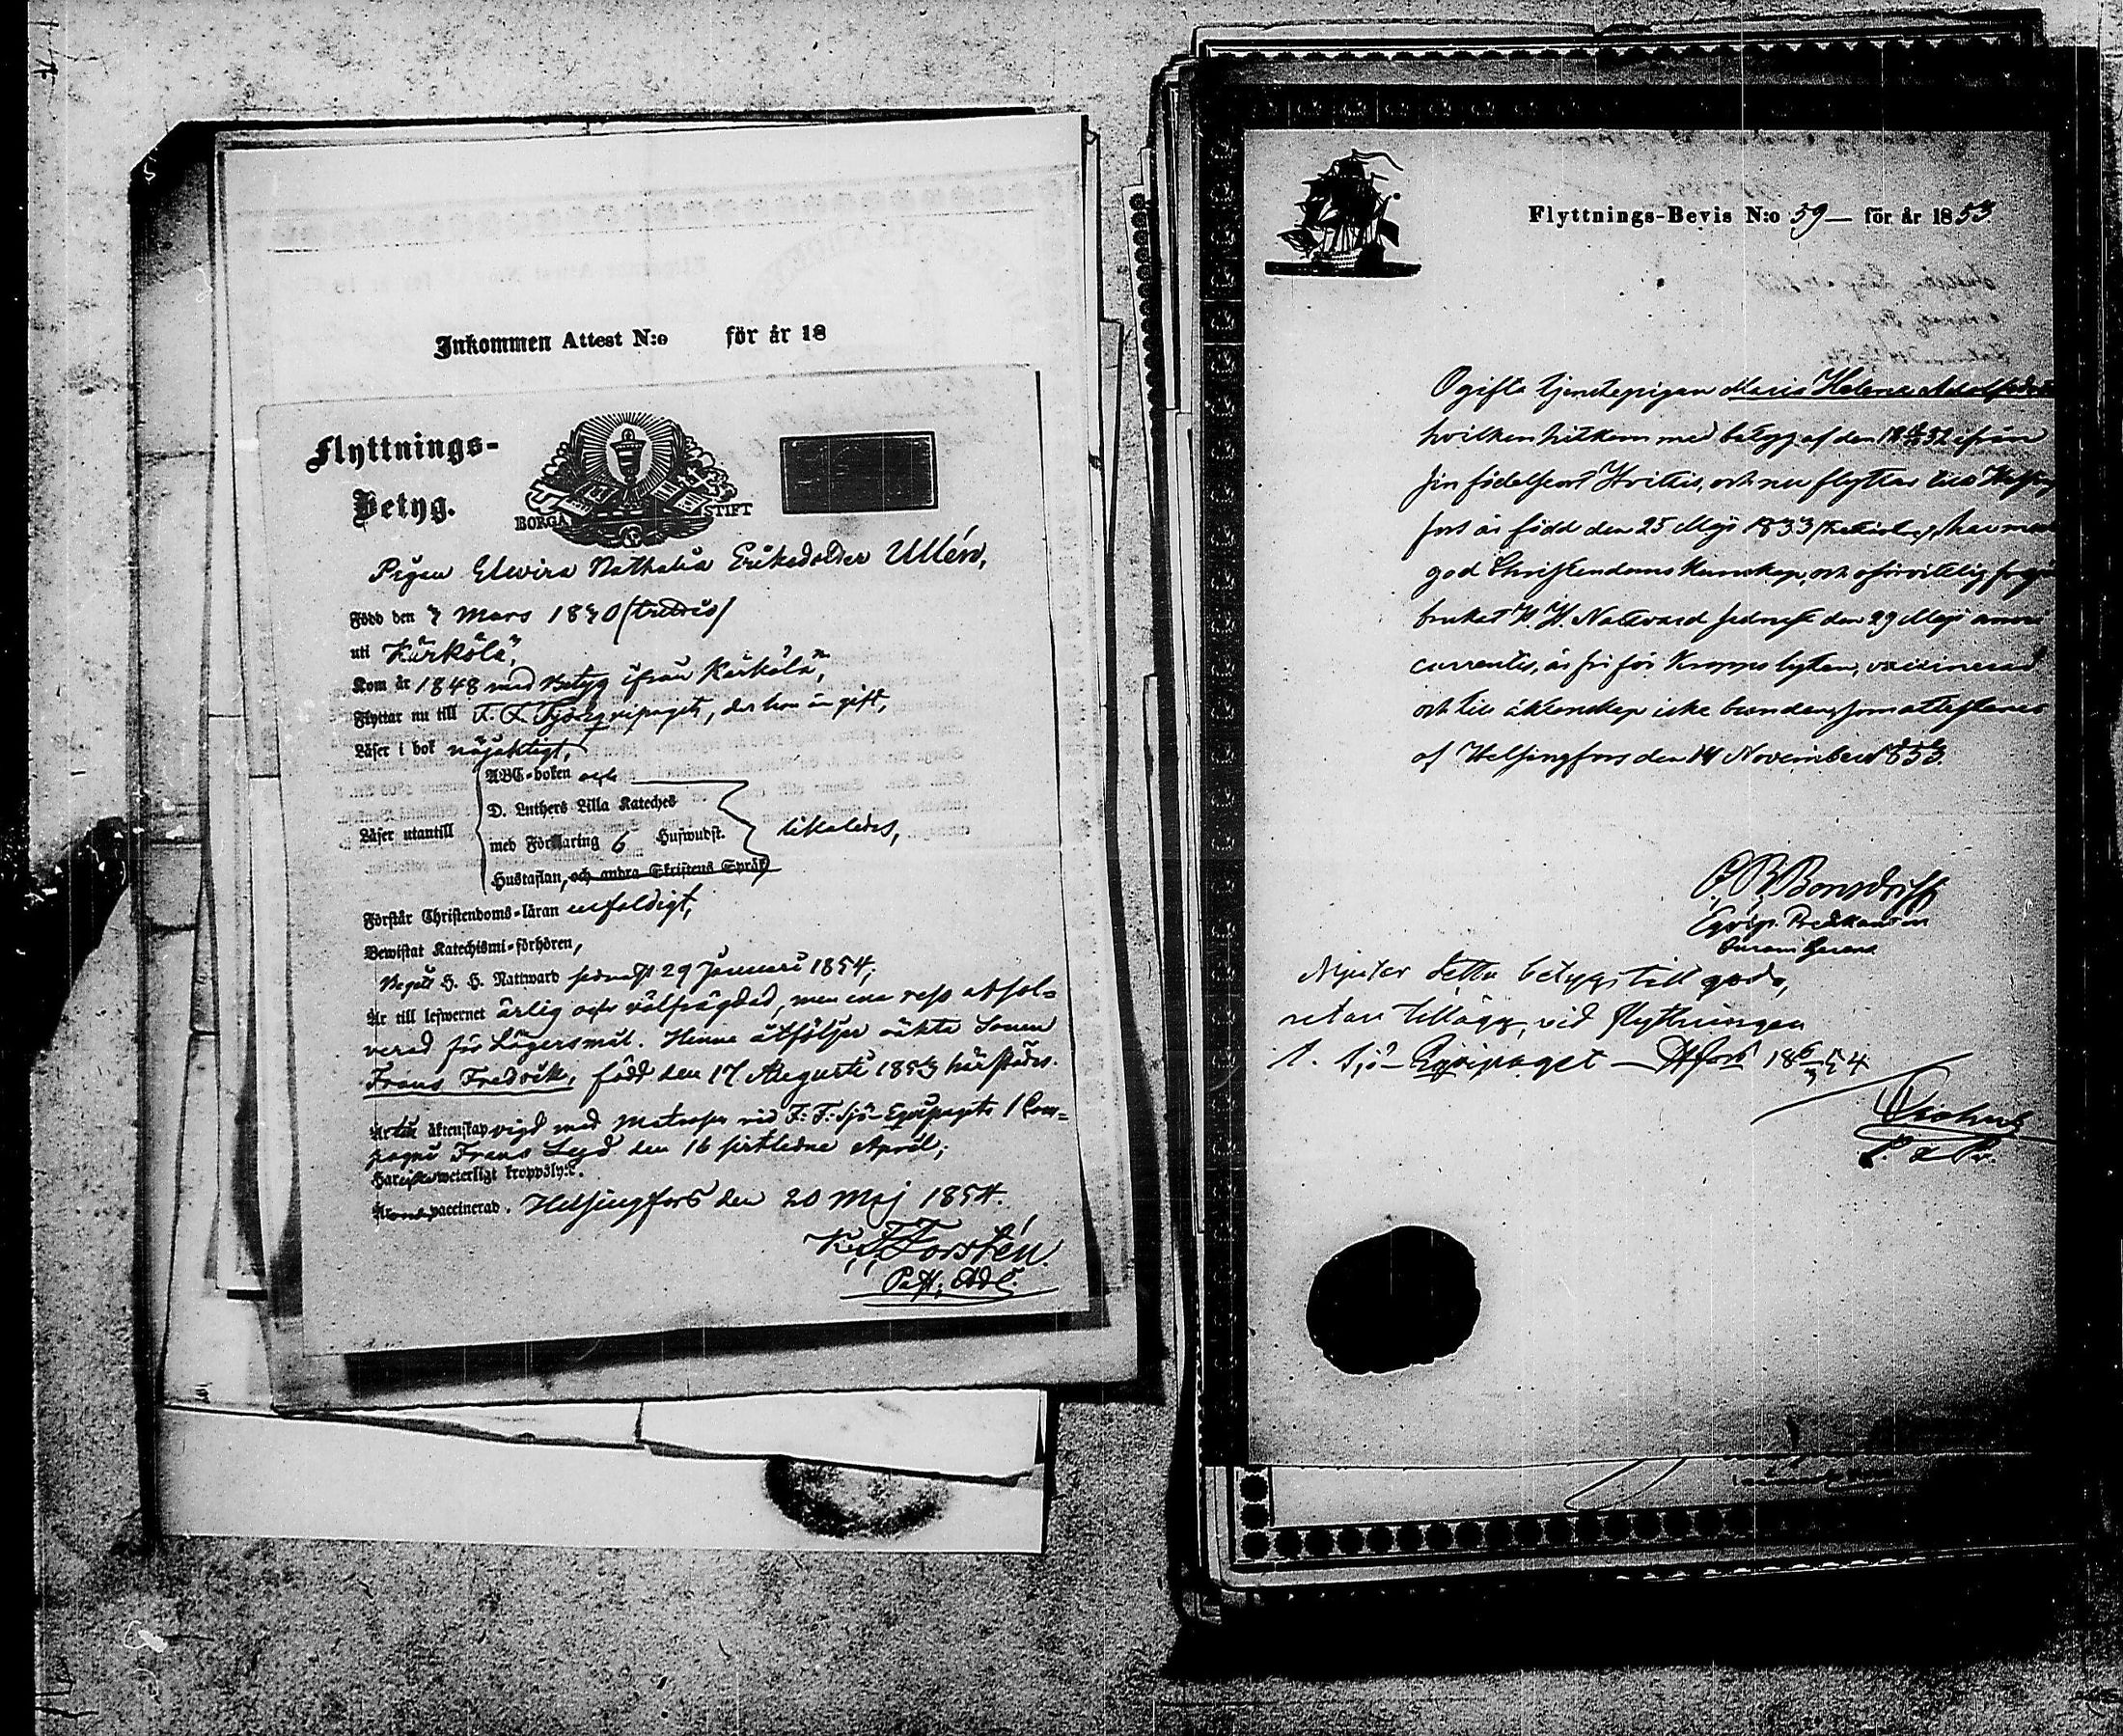 Inkommen Attest N:o för år 18
Flyttnings-
Betyg.
BORGÅ STIFT
Pigan Elvira Nathalia Eriksdotter Ullén,
Född den 7 Mars 1830 (trettio)
uti Kärkölä,
Kom år 1848 med Betyg ifrån Kärkölä,
Flyttar nu till F. F. Sjö-Equipaget, der hon är gift,
Läser i bok nöjaktigt,
ABC-boken och
D. Luthers Lilla Kateches
Läser utantill med Förklaring 6 Hufwudst. likaledes,
Hustaflan, och andra Skriftens Språk
Förstår Christendoms-läran enfaldigt,
Bewistat Katechismi-förhören,
Begått H. H. Nattward sednast 29 Januari 1854,
Är till lefwernet ärlig och välfrägdad, men ena reso absol-
verad för Lägersmål. Henne åtföljer oäkta Sonen
Frans Fredrik, född den 17 Augusti 1853 härstädes.
Är till äktenskap vigd med Matrosen vid F: F: Sjö-Equipagets 1 Com-
pagni Frans den 16 sistledne April,
Har weterligt kroppslyte.
Är vaccinerad. Helsingfors den 20 Maj 1854.
Forstén.
Past. Adj.
Flyttnings-Bevis N:o 59 — för år 1853
Ogifta tjenstepigan Maria Helena
hvilken hitkom med betyg af den 52 ifrån
sin födelseort och nu flyttar till
fors är född den 25 Maji 1833 har
god Christendoms Kunskap, och oförvitelig
brukat H. H. Nattvard sednast den 29 Maji anni
currentis, är fri för Kroppslyten, vaccinerad
och till äktenskap icke bunden, som attesteras
af Helsingfors den 14 November 1853.
Bonsdorff
Equip. Predikant
Njuter detta betyg till godo,
utan tillägg, vid flyttningen
t. Sjö-Equipaget — H:fors 18 54